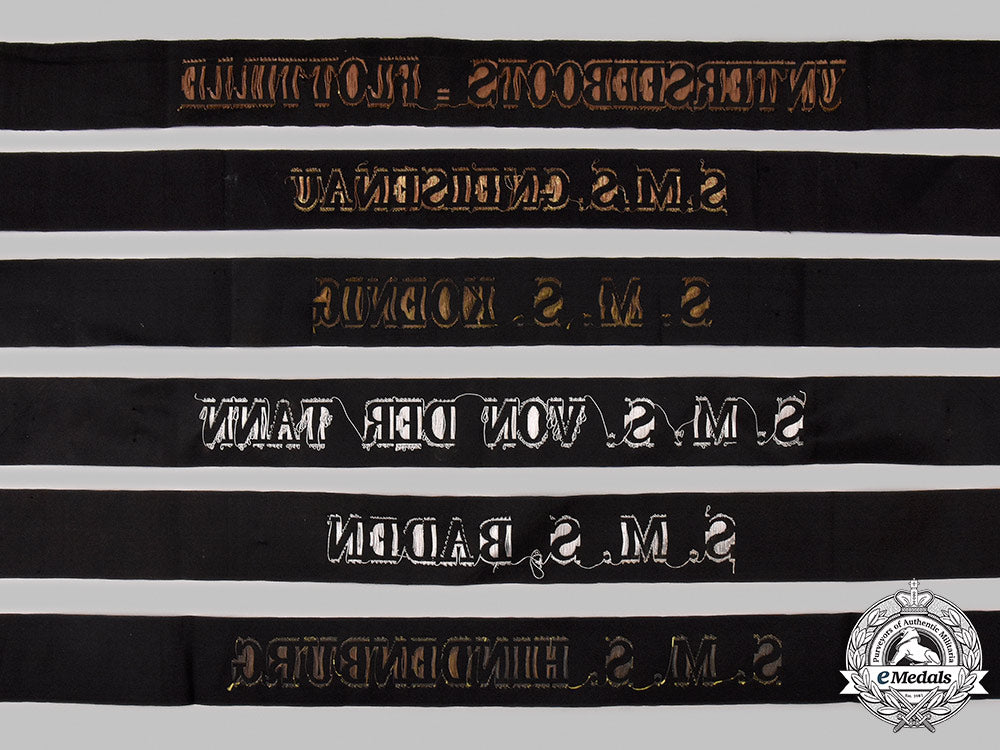 UNTERSEEBOOTS = FLOTTILLE
S.M.S. GNEISENAU
S. M. S. KOENIG
S. M. S. VON DER TANN
S. M. S. BADEN
S. M. S. HINDENBURG
Purveyors of Authentic Militaria
eMedals